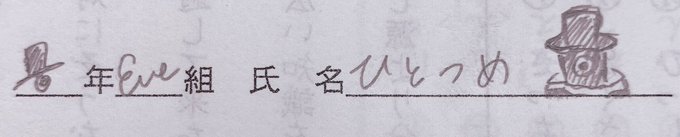 年Eve組 氏 名ひとつめ